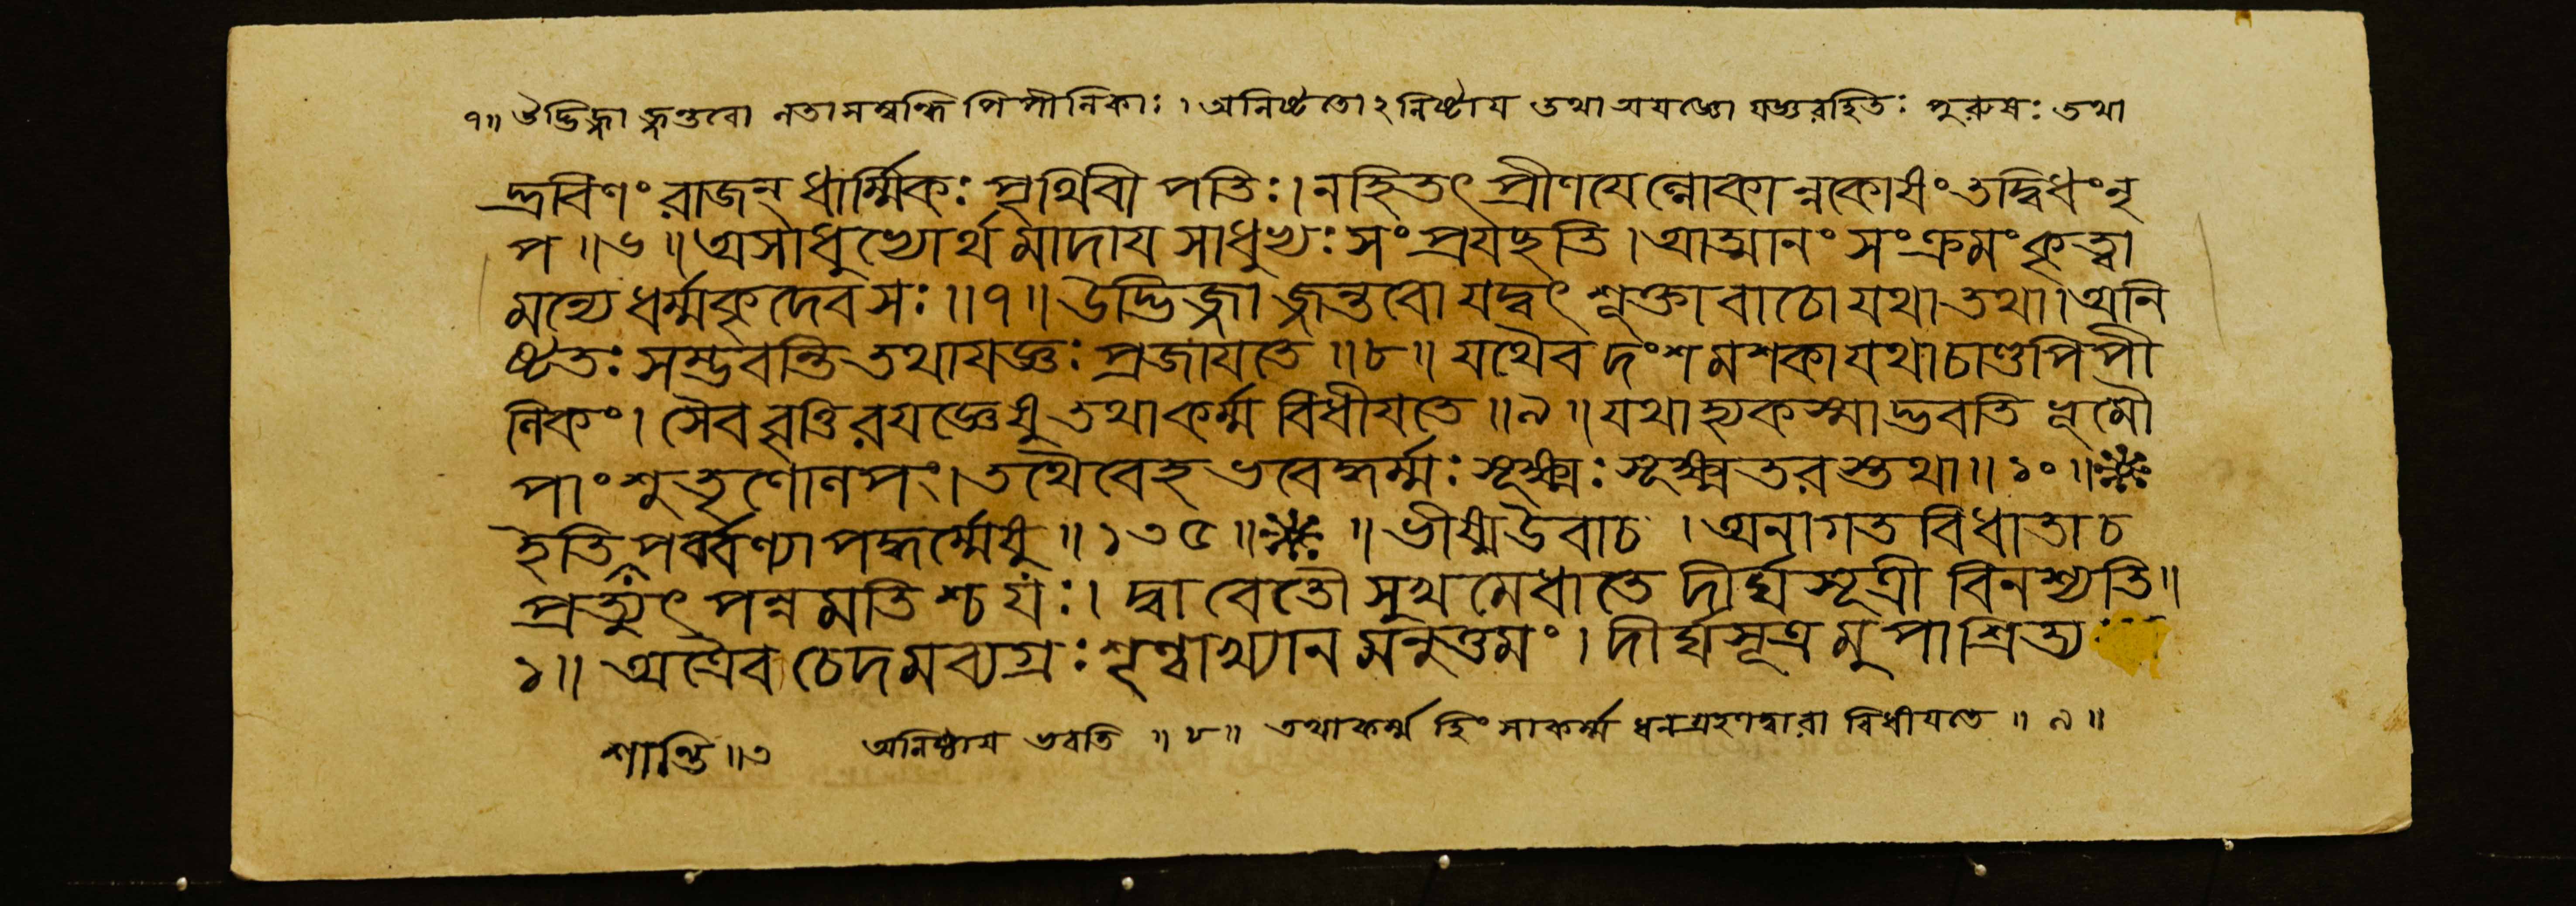 ৭॥ ঔদ্ভিজ্জা জন্তবো নতামম্বন্তি পিপীলিকাঃ। অনিষ্টতোঽনিষ্টায তথা অযজ্ঞো যজ্ঞরহিতঃ পুরুষঃ তথা
দ্রবিণং রাজন্ ধার্ম্মিকঃ পৃথিবী পতিঃ। নহিতৎ প্রীণযেল্লোকান্নকোষং তদ্বিধং নৃ
প ॥ ৬ ॥ অসাধুভ্যোর্থমাদায সাধুভ্যঃ সংপ্রযছতি। আত্মানং সংক্রমং কৃত্বা
মন্যে ধর্ম্মকৃদেব সঃ ॥ ৭ ॥ উদ্ভিজ্জা জন্তবো যদ্বৎ শূক্তাবাঠো যথা তথা। অনি
ষ্টতঃ সম্ভবন্তি তথাযজ্ঞঃ প্রজাযতে ॥ ৮ ॥ যথৈব দংশমশকা যথা চাণ্ডপিপী
লিকং। সৈব বৃত্তিরযজ্ঞেষু তথা কর্ম্ম বিধীযতে ॥ ৯ ॥ যথা হ্যকস্মাদ্ভবতি ধূমৌ
পাংশুতৃণোলপং। তথৈবেহ ভবেদ্ধর্ম্মঃ সূক্ষ্মঃ সূক্ষ্মতরস্তথা ॥ ১০ ॥
ইতি পর্ব্বণ্যাপদ্ধর্ম্মেষু ॥ ১৩৫ ॥ ॥ ভীষ্ম উবাচ । অনাগত বিধাতা চ
প্রত্যুৎপন্নমতিশ্চ যঃ। দ্বাবেতৌ সুখমেধাতে দীর্ঘসূত্রী বিনশ্যতি ॥
১॥ অত্রৈব চেদমব্যগ্রঃ শৃণ্বাখ্যানমনুত্তমং। দীর্ঘসূত্রমুপাশ্রিত্য
শান্তি ॥ ৩ অনিষ্ঠায ভবতি ॥ ৮ ॥ তথাকর্ম্ম হিংসাকর্ম্ম ধনগ্রহণদ্বারা বিধীযতে ॥ ৯ ॥